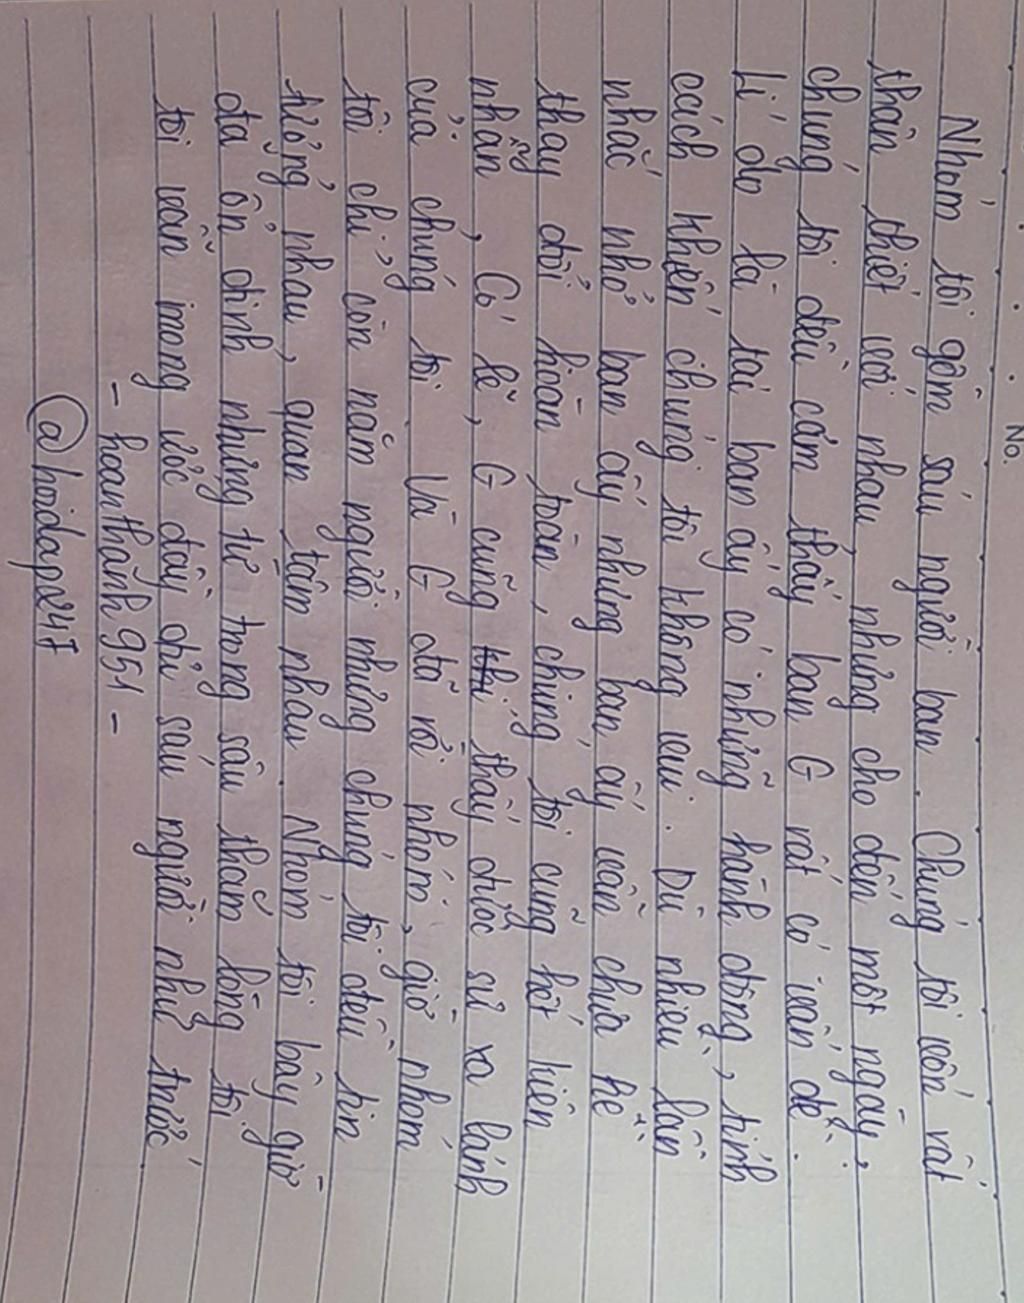 No.
Nhóm tôi gồm sáu người bạn. Chúng tôi vốn rất
thân thiết với nhau, nhưng cho đến một ngày,
chúng tôi đều cảm thấy bạn G rất có vấn đề.
Lí do là tại bạn ấy có những hành động, tính
cách khiến chúng tôi không vui. Dù nhiều lần
nhắc nhở bạn ấy nhưng bạn ấy vẫn chưa hề
thay đổi hoàn toàn, chúng tôi cũng hết kiên
nhẫn, Có lẽ, G cũng thấy được sự xa lánh
của chúng tôi. Và G đã rời nhóm, giờ nhóm
tôi chỉ còn năm người nhưng chúng tôi đều tin
tưởng nhau, quan tâm nhau. Nhóm tôi bây giờ
đã ổn định nhưng từ trong sâu thẳm lòng tôi
tôi vẫn mong ước đầy đủ sáu người như trước.
- hoanthanh951 -
@hoidap247